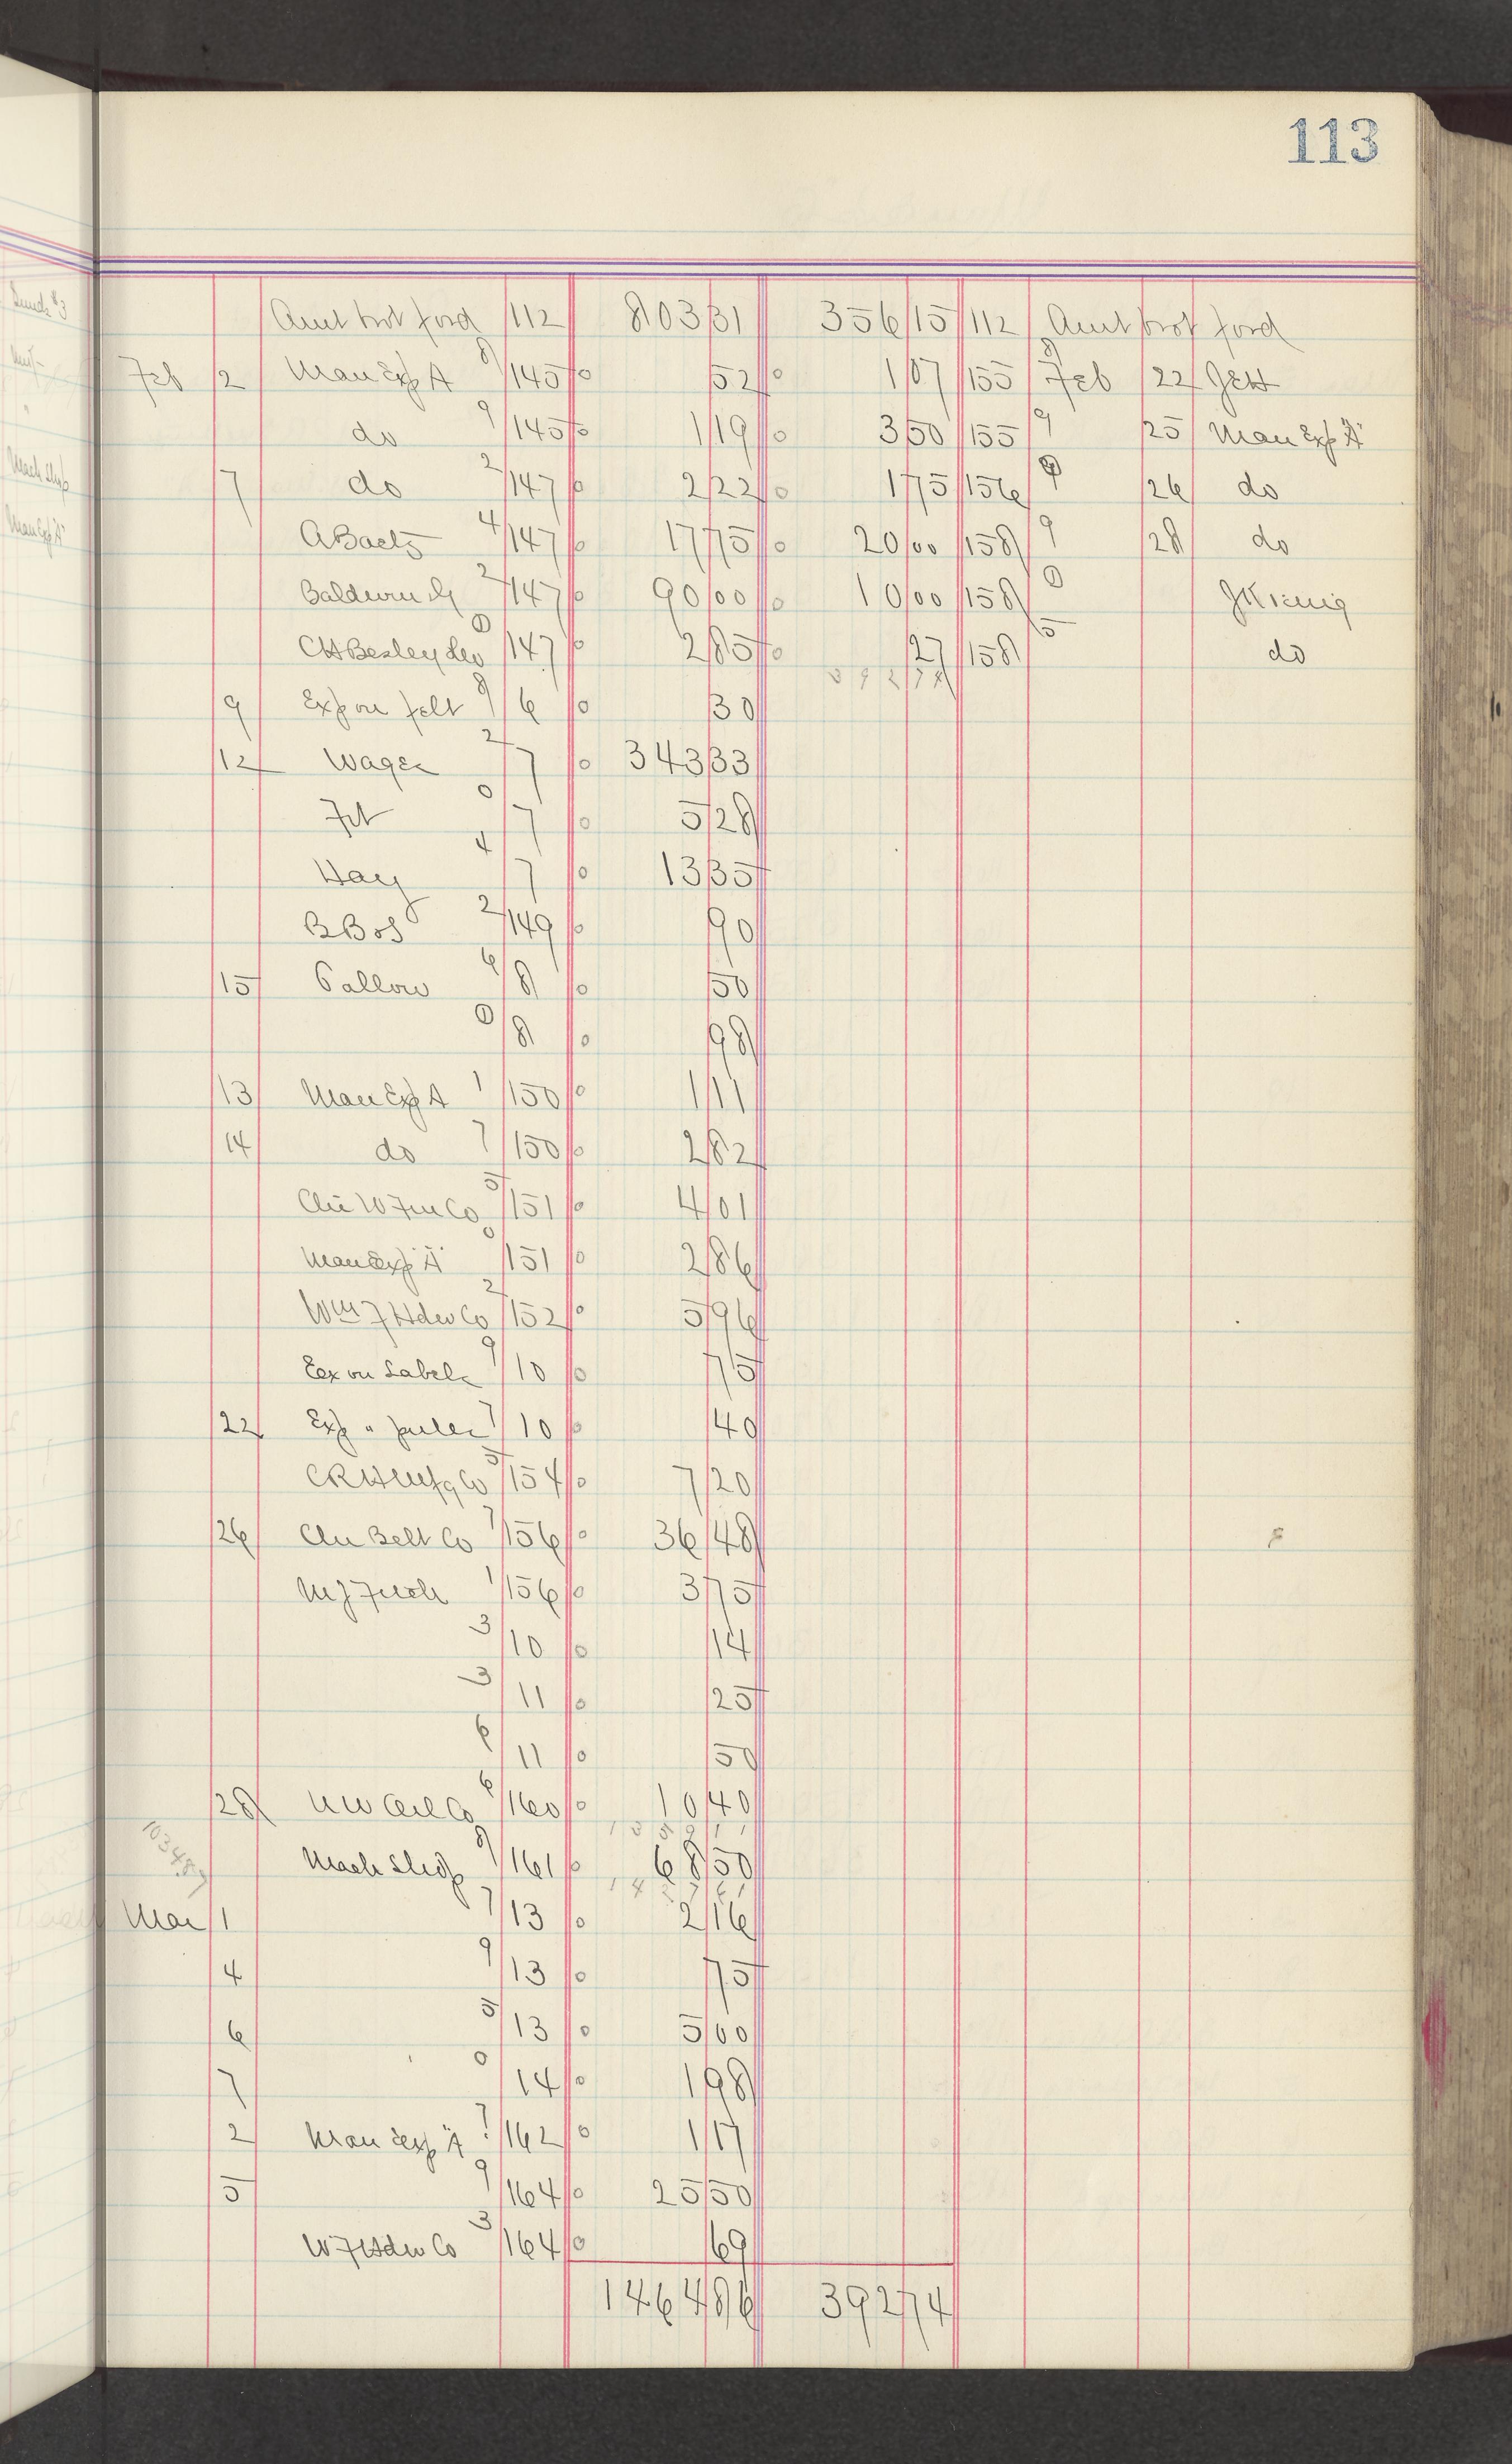 113
Amt brot ford 112 803 31 356 15 112 Amt brot ford
Feb 2 Man Exp A 8 145 52 1 07 155 8 Feb 22 J&H
do 9 145 1 19 3 50 155 9 25 Man Exp "A"
7 do 2 147 2 22 1 75 156 9 26 do
A Baetz 4 147 17 75 20 00 158 9 28 do
Baldwin 2 147 90 00 10 00 158 0 J
CH Besley &Co 0 147 2 85 27 158 5 do
392 74
9 Exp on felt 8 6 30
12 Wages 2 7 343 33
Frt 0 7 5 28
Hay 4 7 13 35
BBos 2 149 90
15 6 8 50
0 8 98
13 Man Exp A 1 150 1 11
14 do 7 150 2 82
Chi W Co 5 151 4 01
Man Exp "A" 0 151 2 86
Wm F Hdw Co 2 152 5 96
Exp on Labels 9 10 75
22 Exp " 7 10 40
CRH Mfg Co 5 154 7 20
26 Chi Belt Co 7 156 36 48
MJ 1 156 3 75
3 10 14
3 11 25
6 11 50
28 NW Co 6 160 10 40
Mach Shop 8 161 68 50
Mar 1 7 13 2 16
4 9 13 75
6 5 13 5 00
7 0 14 1 98
2 Man Exp "A" 7 162 1 17
5 9 164 25 50
WF Hdw Co 3 164 69
1464 86 392 74